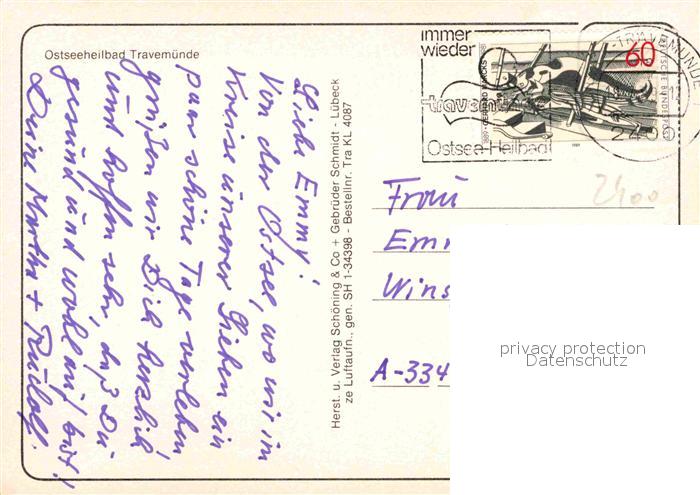 Ostseeheilbad Travemünde
Liebe Emmy!
Von der Ostsee, wo wir im
Kreise unserer Lieben ein
paar schöne Tage verleben
grüßen wir Dich herzlich,
und hoffen sehr, daß Du
gesund und wohlauf bist!
Deine Martha + Rudolf.
Herst. u. Verlag Schöning & Co + Gebrüder Schmidt - Lübeck
ze Luftaufn., gen. SH 1-34398 - Bestellnr. Tra KL 4087
immer
wieder
travemünde
Ostsee-Heilbad
60
DEUTSCHE BUNDESPOST
1889 GERHARD MARCKS 1981
TRAVEMÜNDE
2400
Frau
Em
Wins
A-334
privacy protection
Datenschutz